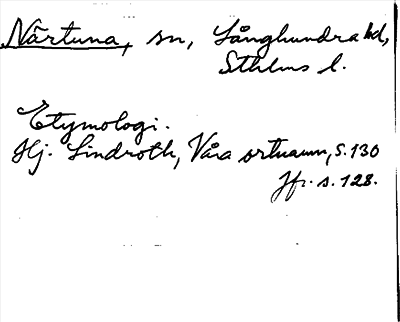 Närtuna, sn, Långhundra hd,
Sthlms l.
Etymologi.
Hj. Lindroth, Våra ortnamn, S. 130
Jfr. s. 128.